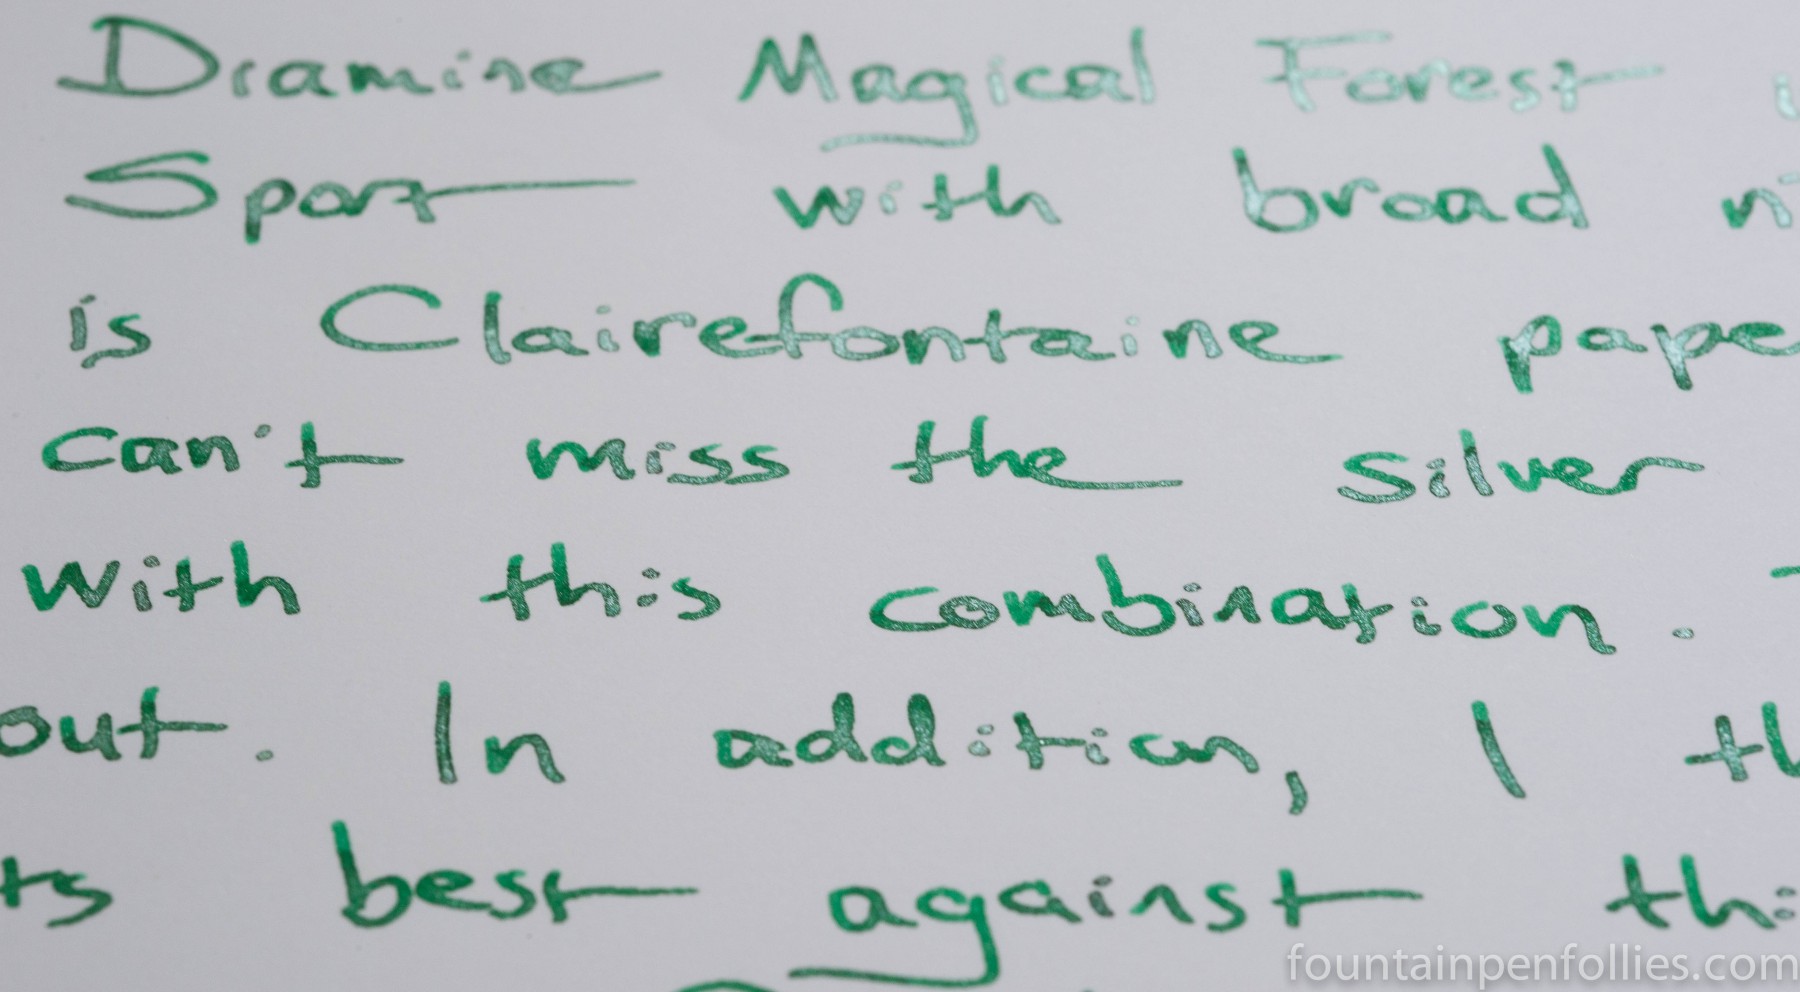 Diamine Magical Forest i
Sport with broad ni
is Clairefontaine pape
can't miss the silver
with this combination.
out. In addition, I th
ts best against thi
fountainpenfollies.com